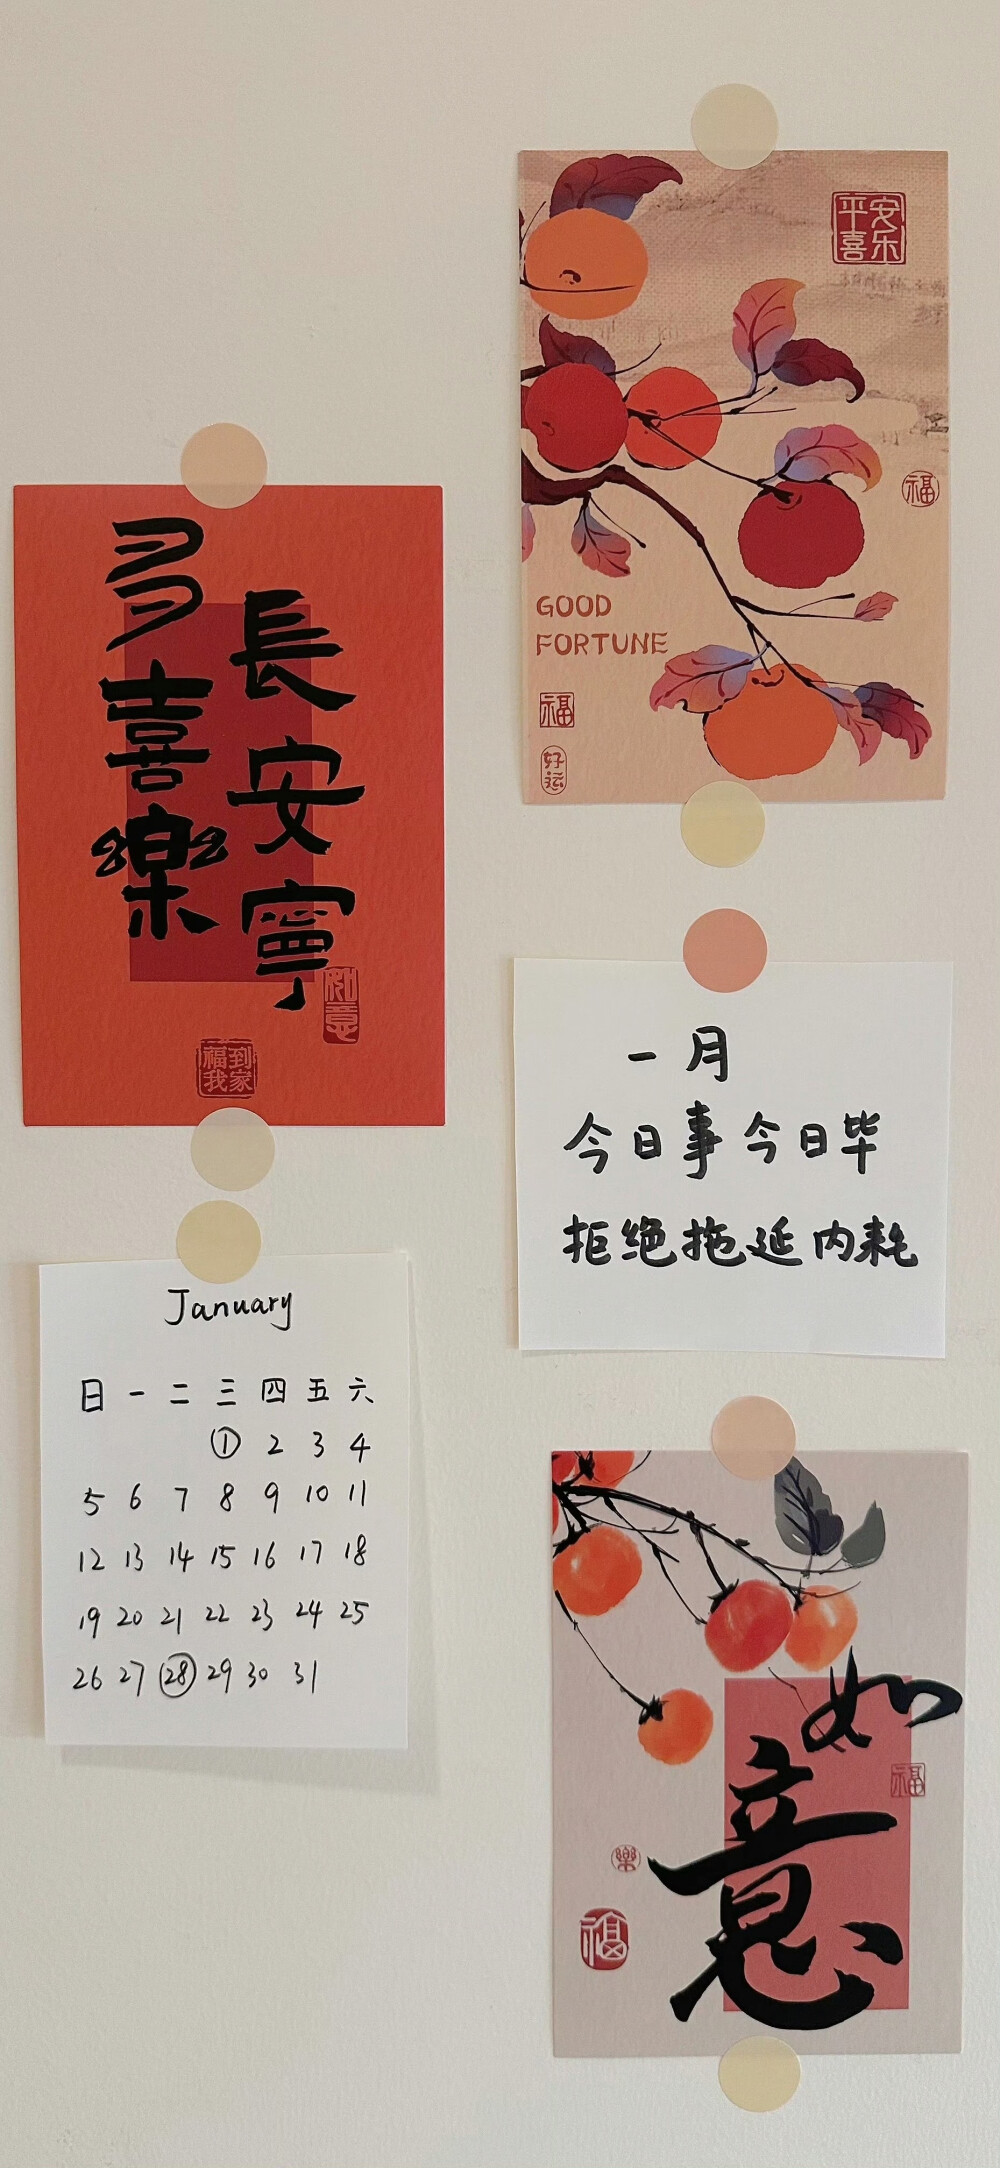 多喜樂
長安寧
如意
福到
我家
January
日 一 二 三 四 五 六
1 2 3 4
5 6 7 8 9 10 11
12 13 14 15 16 17 18
19 20 21 22 23 24 25
26 27 28 29 30 31
平安
喜乐
福
GOOD
FORTUNE
福
好运
一月
今日事今日毕
拒绝拖延内耗
如意
福
樂
福